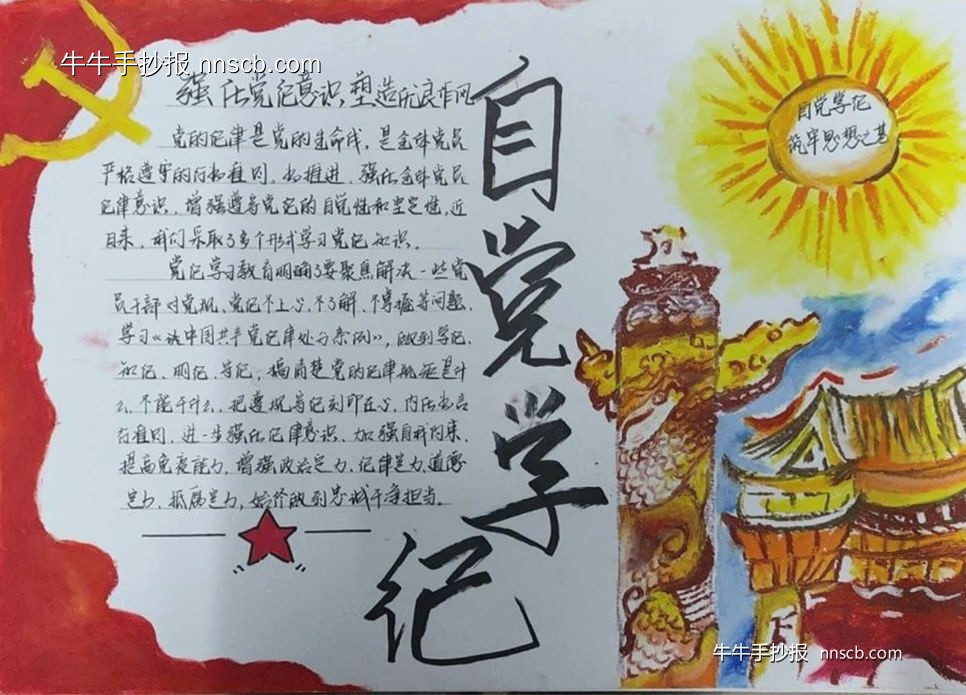 牛牛手抄报 nnscb.com
强化党纪意识 塑造优良作风
党的纪律是党的生命线，是全体党员
严格遵守的行为准则，为推进、强化全体党员
纪律意识，增强遵守党纪的自觉性和坚定性，近
日来，我们采取了多个形式学习党纪知识。
党纪学习教育明确了要聚焦解决一些党
员干部对党规、党纪不上心、不了解、不掌握等问题，
学习《中国共产党纪律处分条例》，做到学纪、
知纪、明纪、守纪，搞清楚党的纪律规矩是什
么，不能干什么，把遵规守纪刻印在心，内化为言
行准则，进一步强化纪律意识、加强自我约束、
提高免疫能力，增强政治定力、纪律定力、道德
定力、抵腐定力，始终做到忠诚干净担当。
自党学纪
自党学纪
筑牢思想之基
牛牛手抄报 nnscb.com